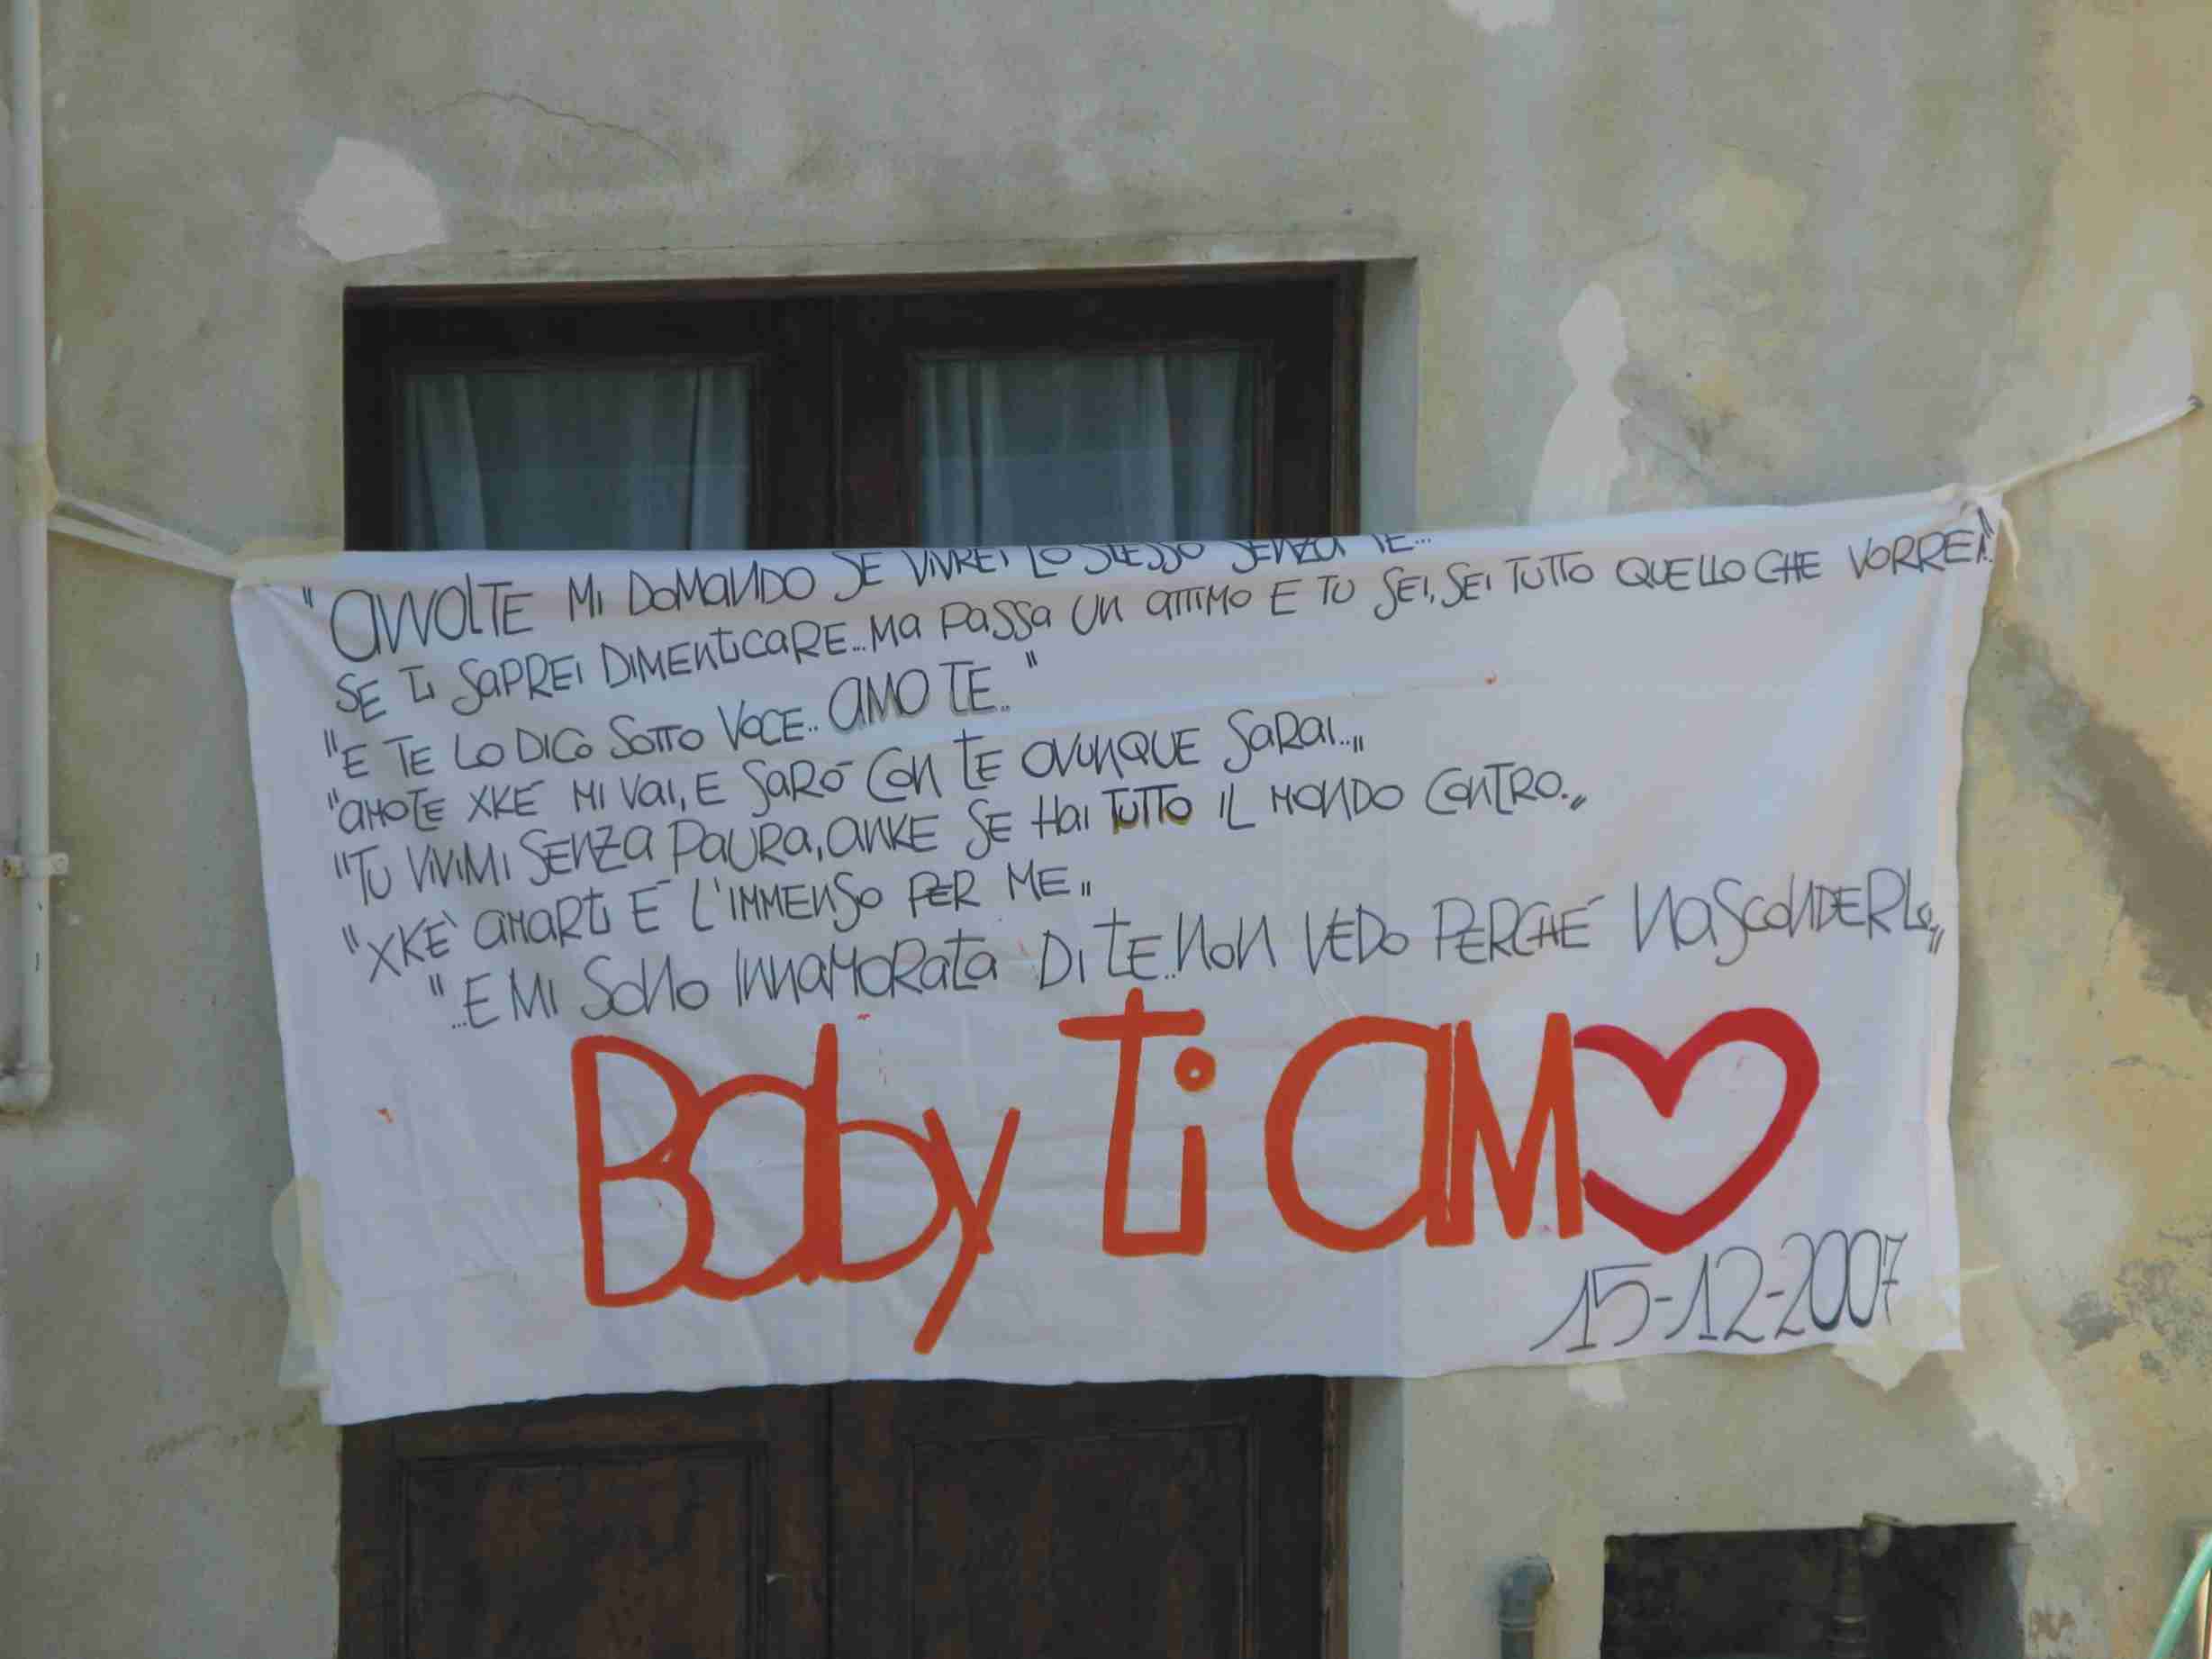 "AVVOLTE MI DOMANDO SE VIVREI LO STESSO SENZA TE...
SE TI SAPREI DIMENTICARE...MA PASSA UN ATTIMO E TU SEI, SEI TUTTO QUELLO CHE VORREI."
"E TE LO DICO SOTTO VOCE.. AMO TE.."
"AMOTE XKÉ MI VAI, E SARÒ CON TE OVUNQUE SARAI..."
"TU VIVIMI SENZA PAURA, ANKE SE HAI TUTTO IL MONDO CONTRO.."
"XKÈ AMARTI É L'IMMENSO PER ME"
"...E MI SONO INNAMORATA DI TE..NON VEDO PERCHÉ NASCONDERLO"
Baby ti am♥
15-12-2007